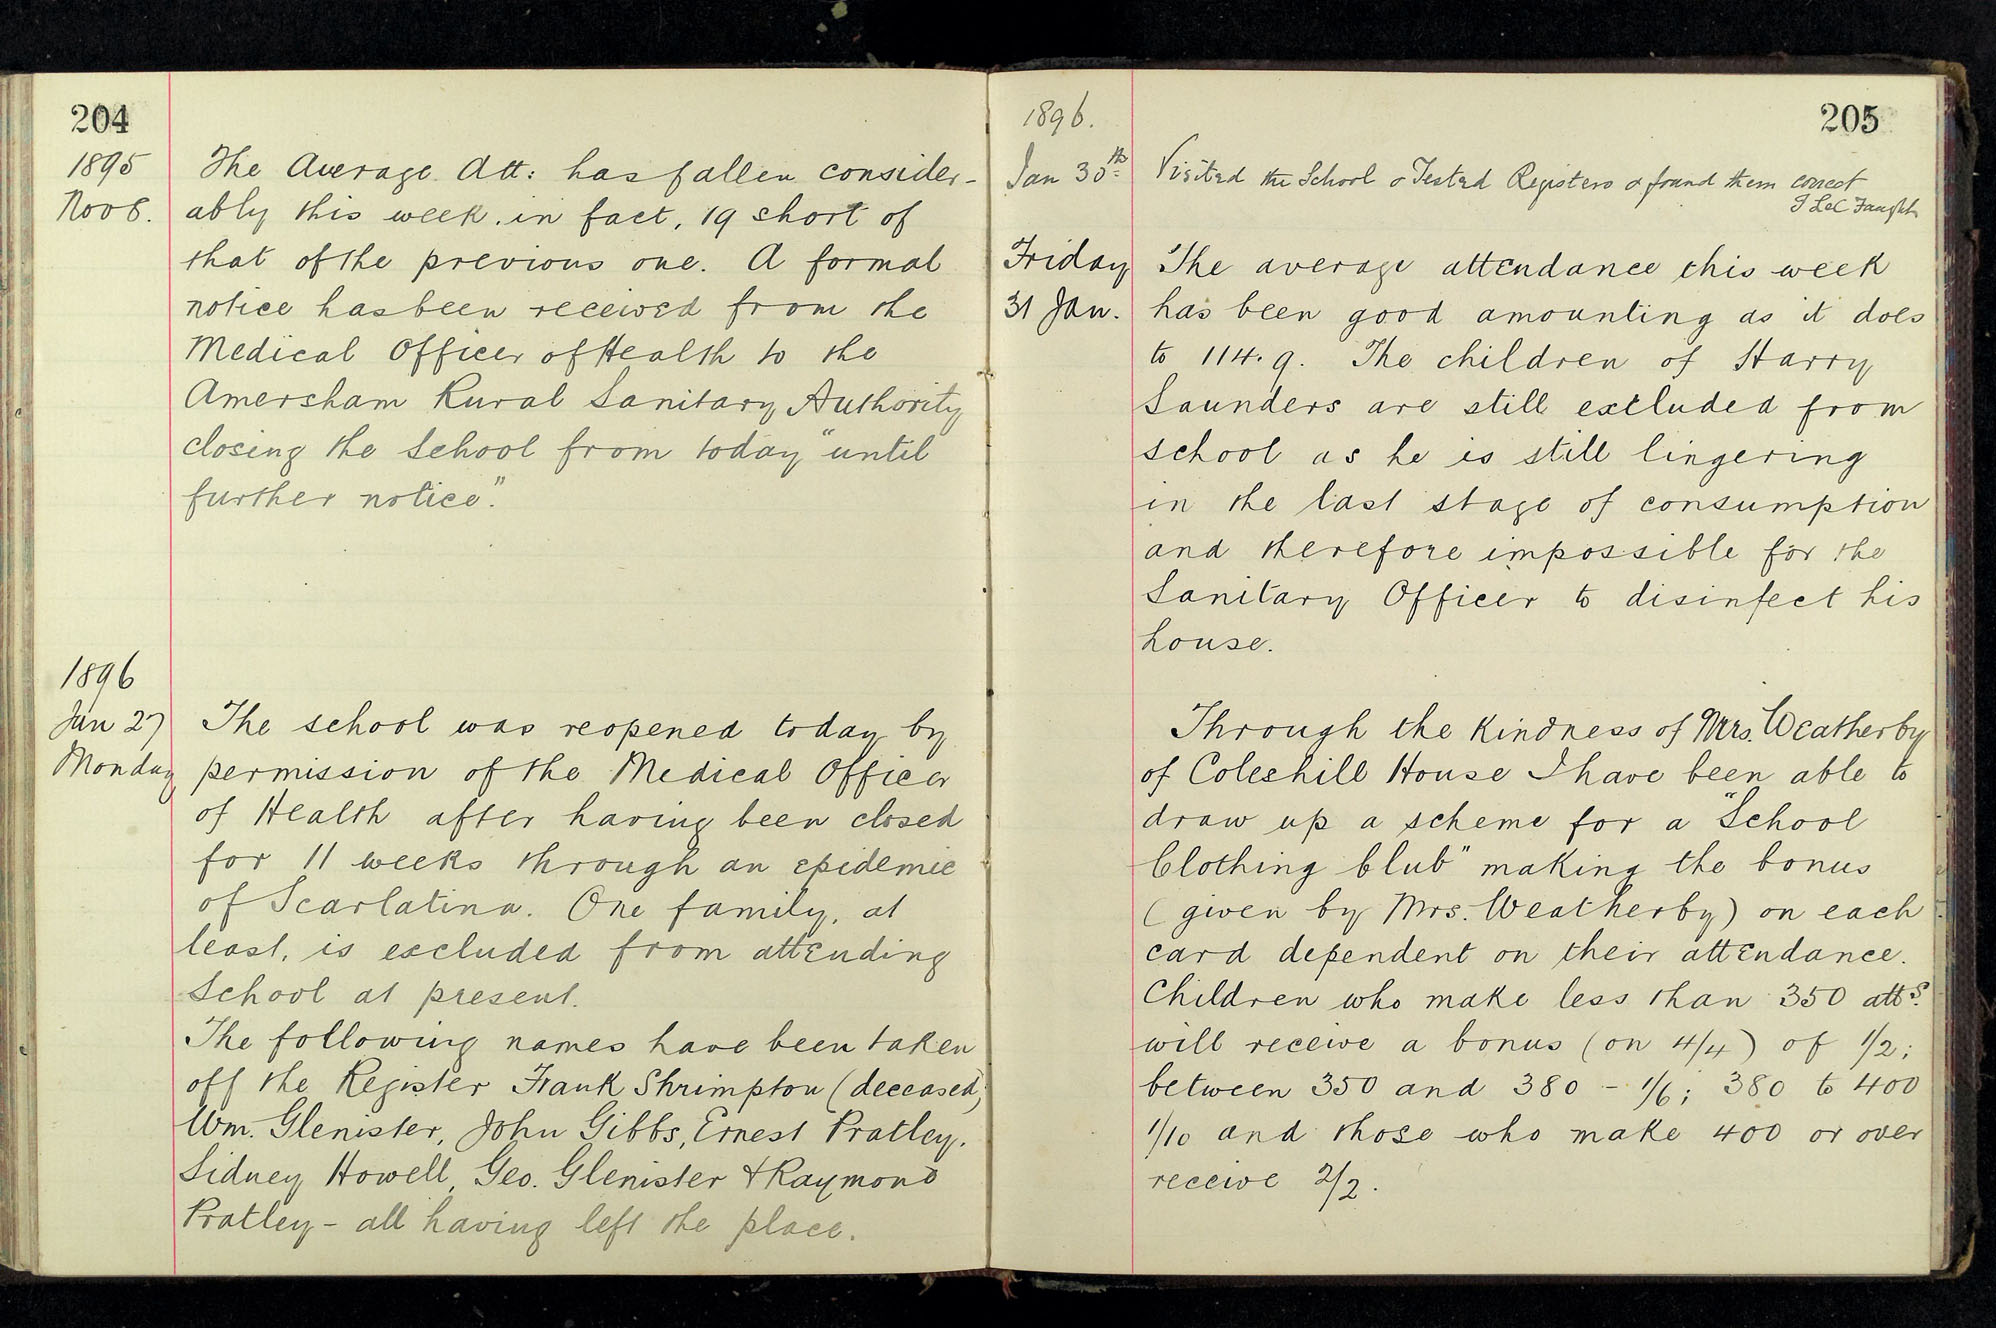 204
1895
Nov 8.
The Average Att: has fallen consider-
ably this week, in fact, 19 short of
that of the previous one. A formal
notice has been received from the
Medical Officer of Health to the
Amersham Rural Sanitary Authority
closing the School from today "until
further notice".
1896
Jan 27
Monday
The school was reopened today by
permission of the Medical Officer
of Health after having been closed
for 11 weeks through an epidemic
of Scarlatina. One family, at
least, is excluded from attending
School at present.
The following names have been taken
off the Register Frank Shrimpton (deceased)
Wm. Glenister, John Gibbs, Ernest Pratley,
Sidney Howell, Geo. Glenister & Raymond
Pratley - all having left the place.
205
1896.
Jan 30th
Visited the School & Tested Registers & found them correct
Friday
31 Jan.
The average attendance this week
has been good amounting as it does
to 114.9. The children of Harry
Saunders are still excluded from
school as he is still lingering
in the last stage of consumption
and therefore impossible for the
Sanitary Officer to disinfect his
house.
Through the kindness of Mrs. Weatherby
of Coleshill House I have been able to
draw up a scheme for a "School
Clothing Club" making the bonus
(given by Mrs. Weatherby) on each
card dependent on their attendance.
Children who make less than 350 atts.
will receive a bonus (on 4/4) of 1/2;
between 350 and 380 - 1/6; 380 to 400
1/10 and those who make 400 or over
receive 2/2.